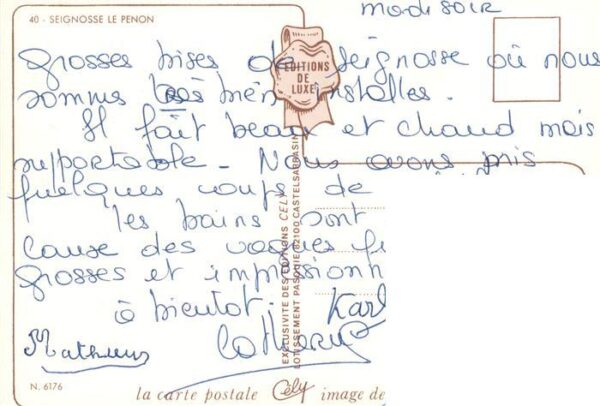 40 - SEIGNOSSE LE PENON
mardi soir
EDITIONS
DE
LUXE
Grosses bises de Seignosse où nous
sommes très bien installés.
Il fait beau et chaud mais
supportable - Nous avons pris
quelques coups de
les bains sont
cause des vagues
grosses et impressionn
à bientôt. Karl
Mathieu
EXCLUSIVITE DES EDITIONS CELY
LOTISSEMENT PASQUIE 82100 CASTELSARRASIN
N. 6176
la carte postale Cély image de